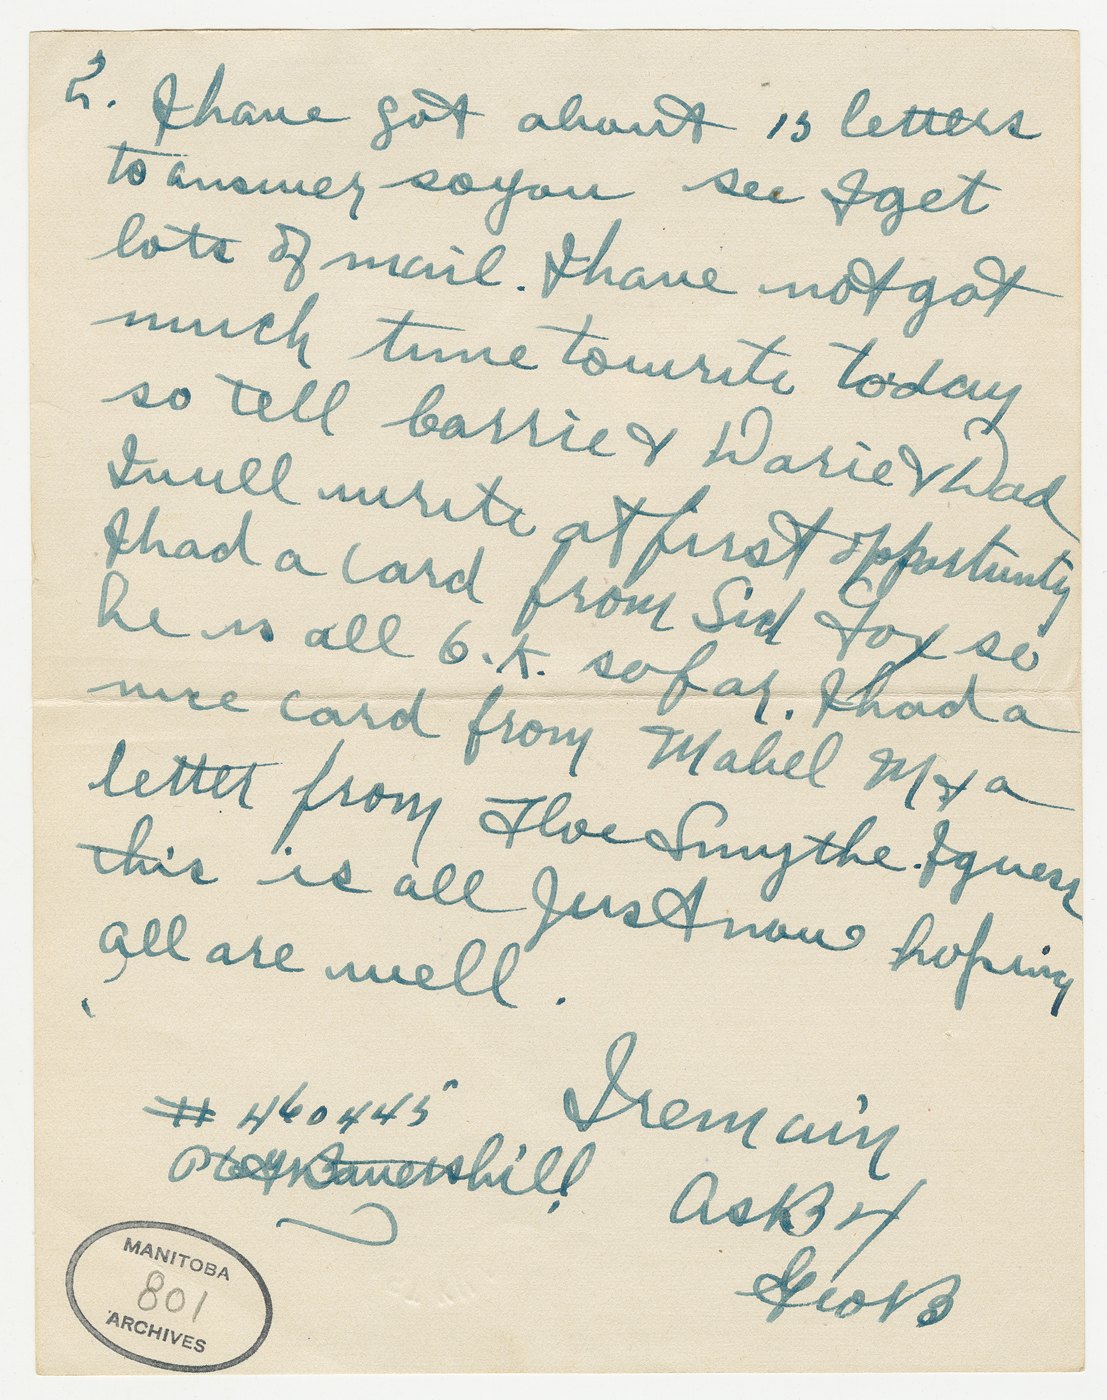 2. I have got about 13 letters
to answer so you see I get
lots of mail. I have not got
much time to write today
so tell barrie & Darie & Dad
I will write at first opportunity
I had a card from Sid Fox so
he is all O.K. so far. I had a
nice card from Mabel M & a
letter from Floe Smythe. I guess
this is all Just now hoping
all are well.
I remain
# 460445
Battershill
As B 4
Geo B
MANITOBA
801
ARCHIVES